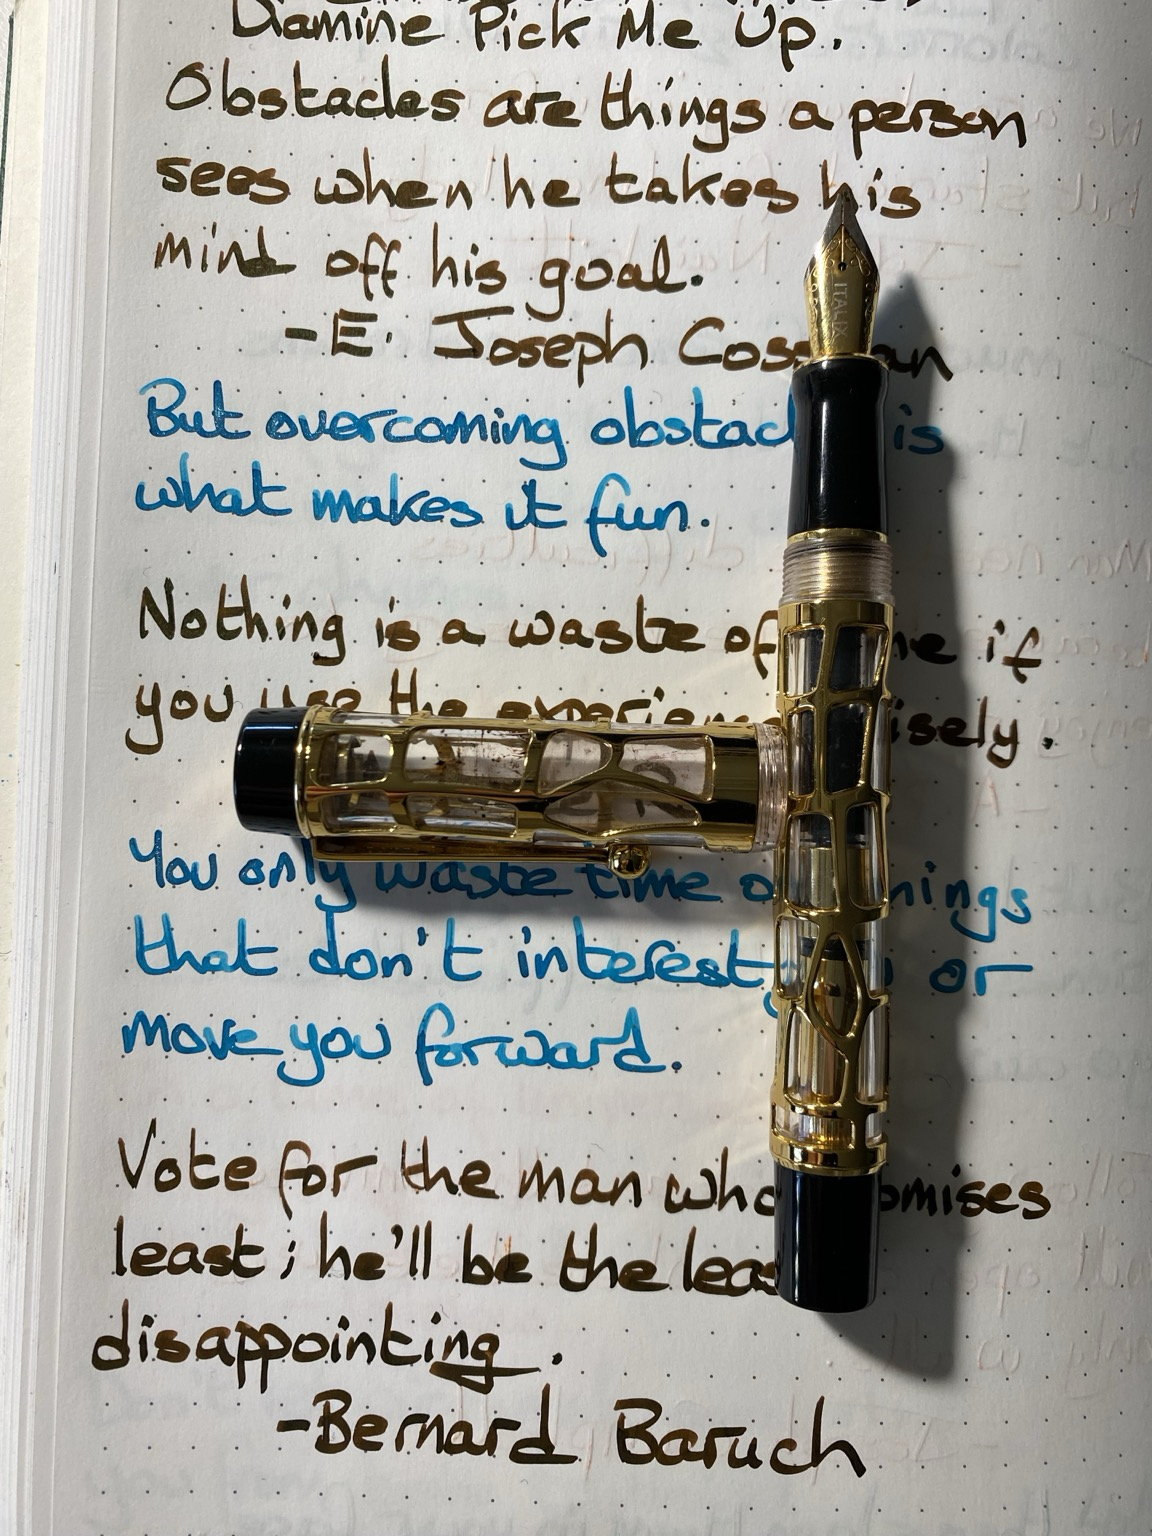 Diamine Pick Me Up.
Obstacles are things a person
sees when he takes his
mind off his goal.
-E. Joseph
But overcoming obstacl is
what makes it fun.
Nothing is a waste of if
you use the wisely.
You only waste time on things
that don't interest or
move you forward.
Vote for the man who promises
least; he'll be the least
disappointing.
-Bernard Baruch
ITALIX